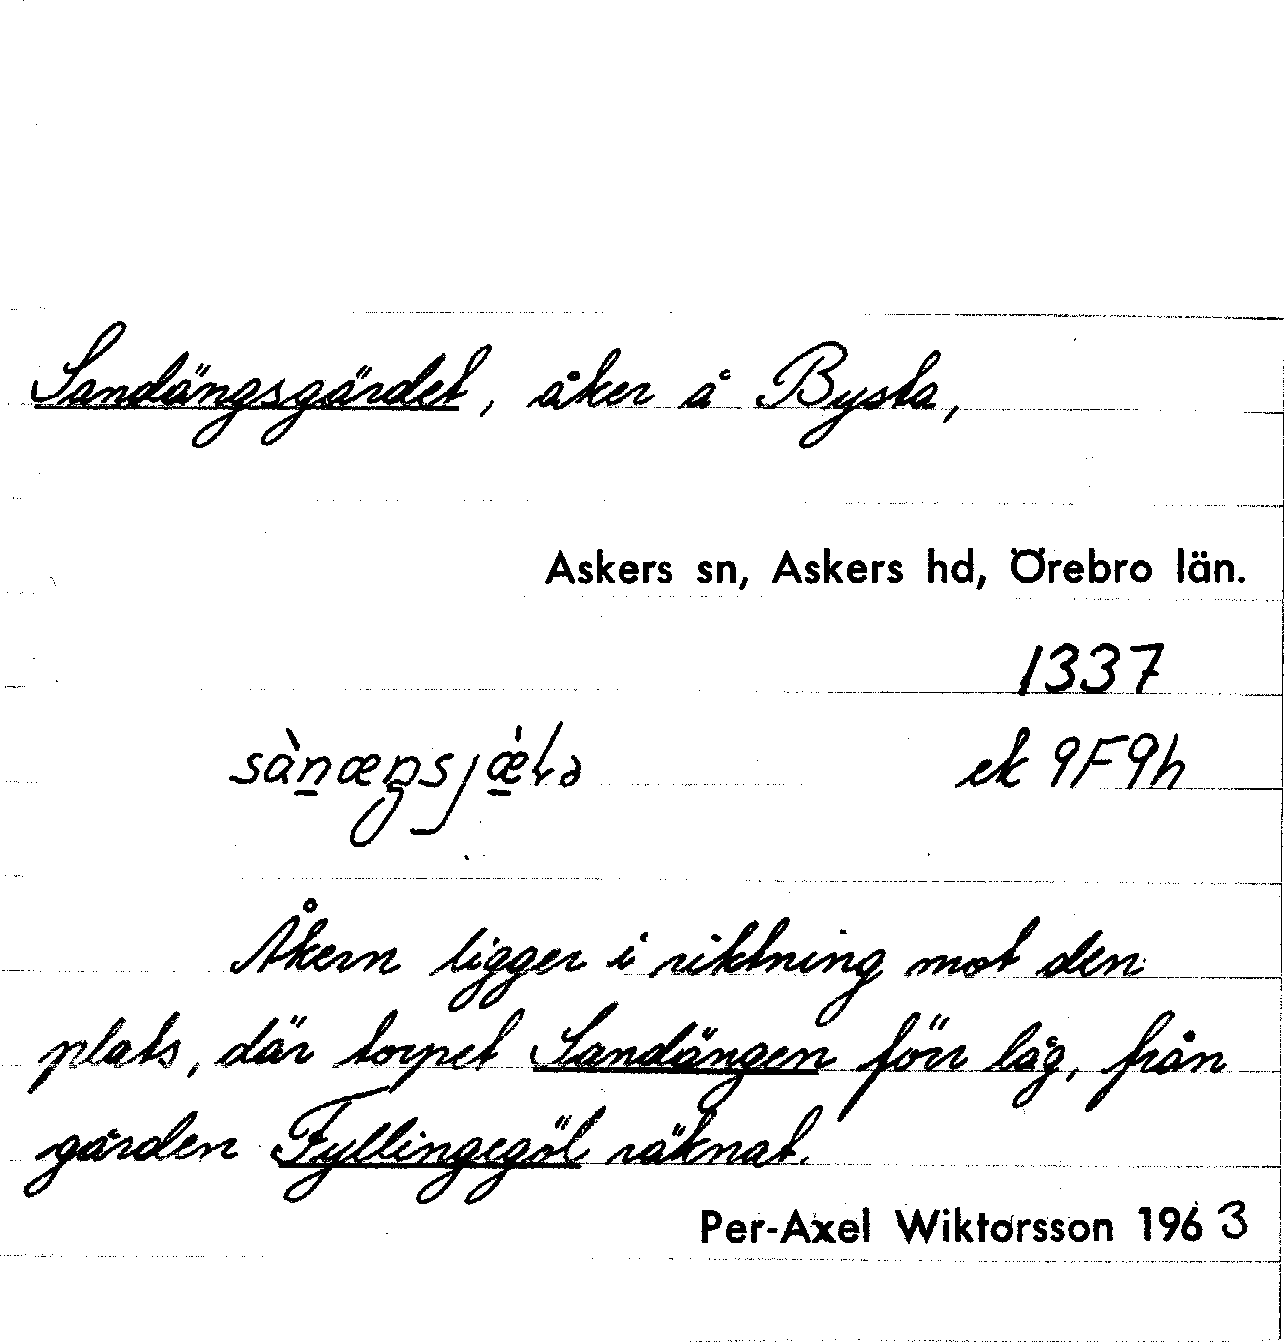 Sandängsgärdet, åker å Bysta,
Askers sn, Askers hd, Örebro län.
1337
ek 9F9h
Åkern ligger i riktning mot den
plats, där torpet Sandängen förr låg, från
gården Fyllingegöl räknat.
Per-Axel Wiktorsson 1963